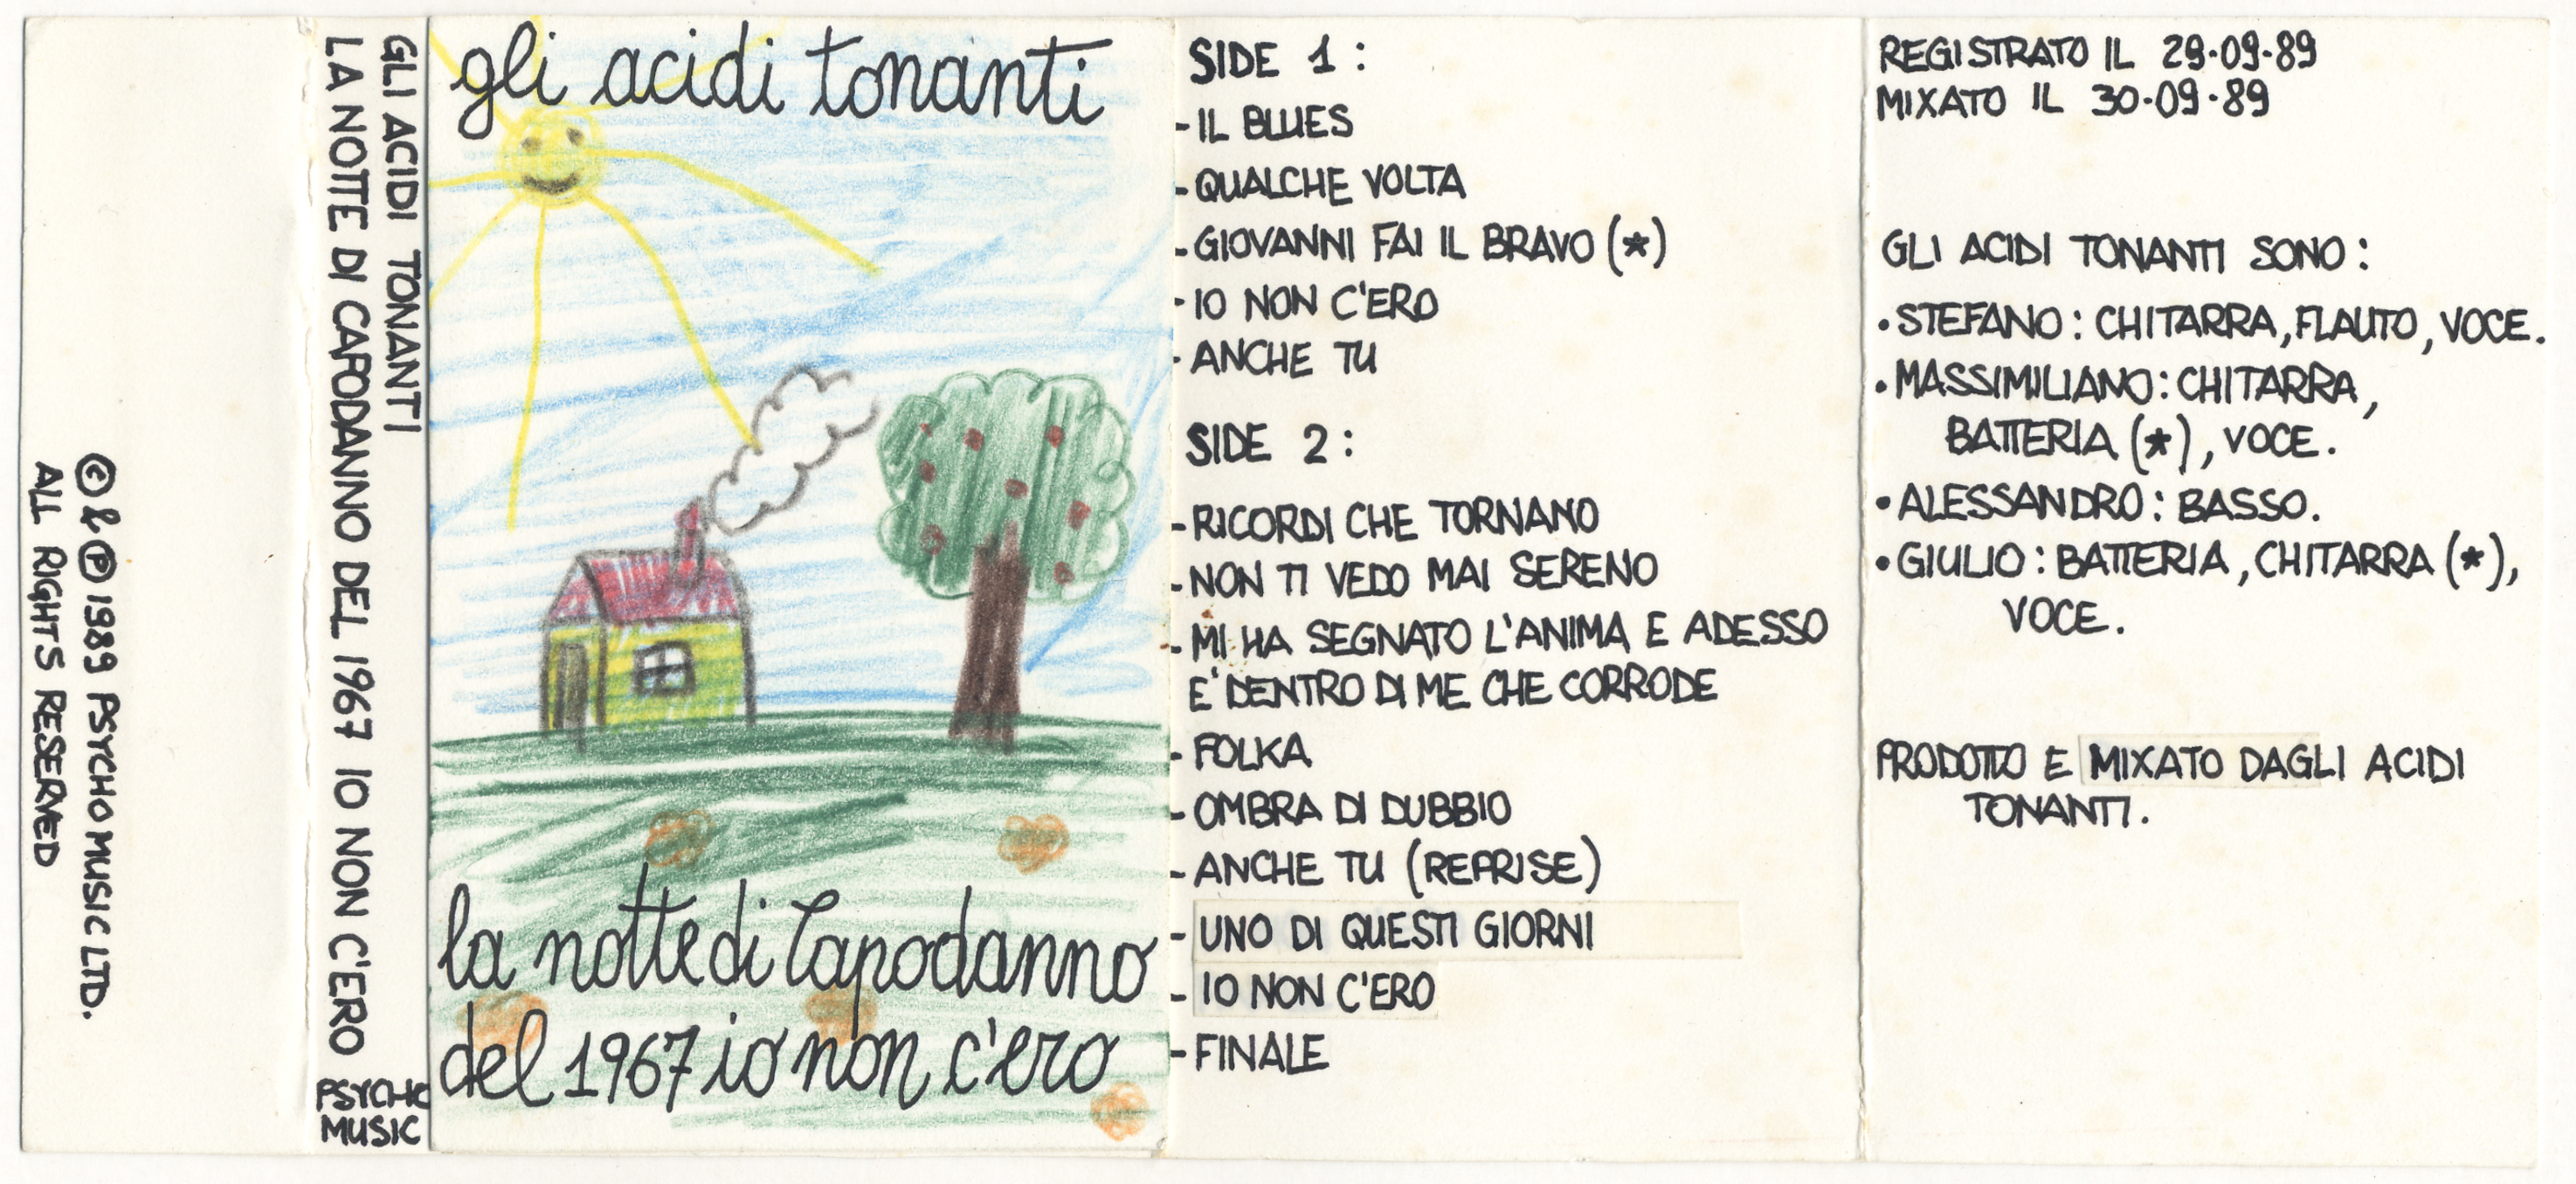 © & ℗ 1989 PSYCHO MUSIC LTD.
ALL RIGHTS RESERVED
GLI ACIDI TONANTI
LA NOTTE DI CAPODANNO DEL 1967 IO NON C'ERO
PSYCHO
MUSIC
gli acidi tonanti
la notte di Capodanno
del 1967 io non c'ero
SIDE 1:
- IL BLUES
- QUALCHE VOLTA
- GIOVANNI FAI IL BRAVO (*)
- IO NON C'ERO
- ANCHE TU
SIDE 2:
- RICORDI CHE TORNANO
- NON TI VEDO MAI SERENO
- MI HA SEGNATO L'ANIMA E ADESSO
E' DENTRO DI ME CHE CORRODE
- FOLKA
- OMBRA DI DUBBIO
- ANCHE TU (REPRISE)
- UNO DI QUESTI GIORNI
- IO NON C'ERO
- FINALE
REGISTRATO IL 29·09·89
MIXATO IL 30·09·89
GLI ACIDI TONANTI SONO:
• STEFANO: CHITARRA, FLAUTO, VOCE.
• MASSIMILIANO: CHITARRA,
BATTERIA (*), VOCE.
• ALESSANDRO: BASSO.
• GIULIO: BATTERIA, CHITARRA (*),
VOCE.
PRODOTTO E MIXATO DAGLI ACIDI
TONANTI.